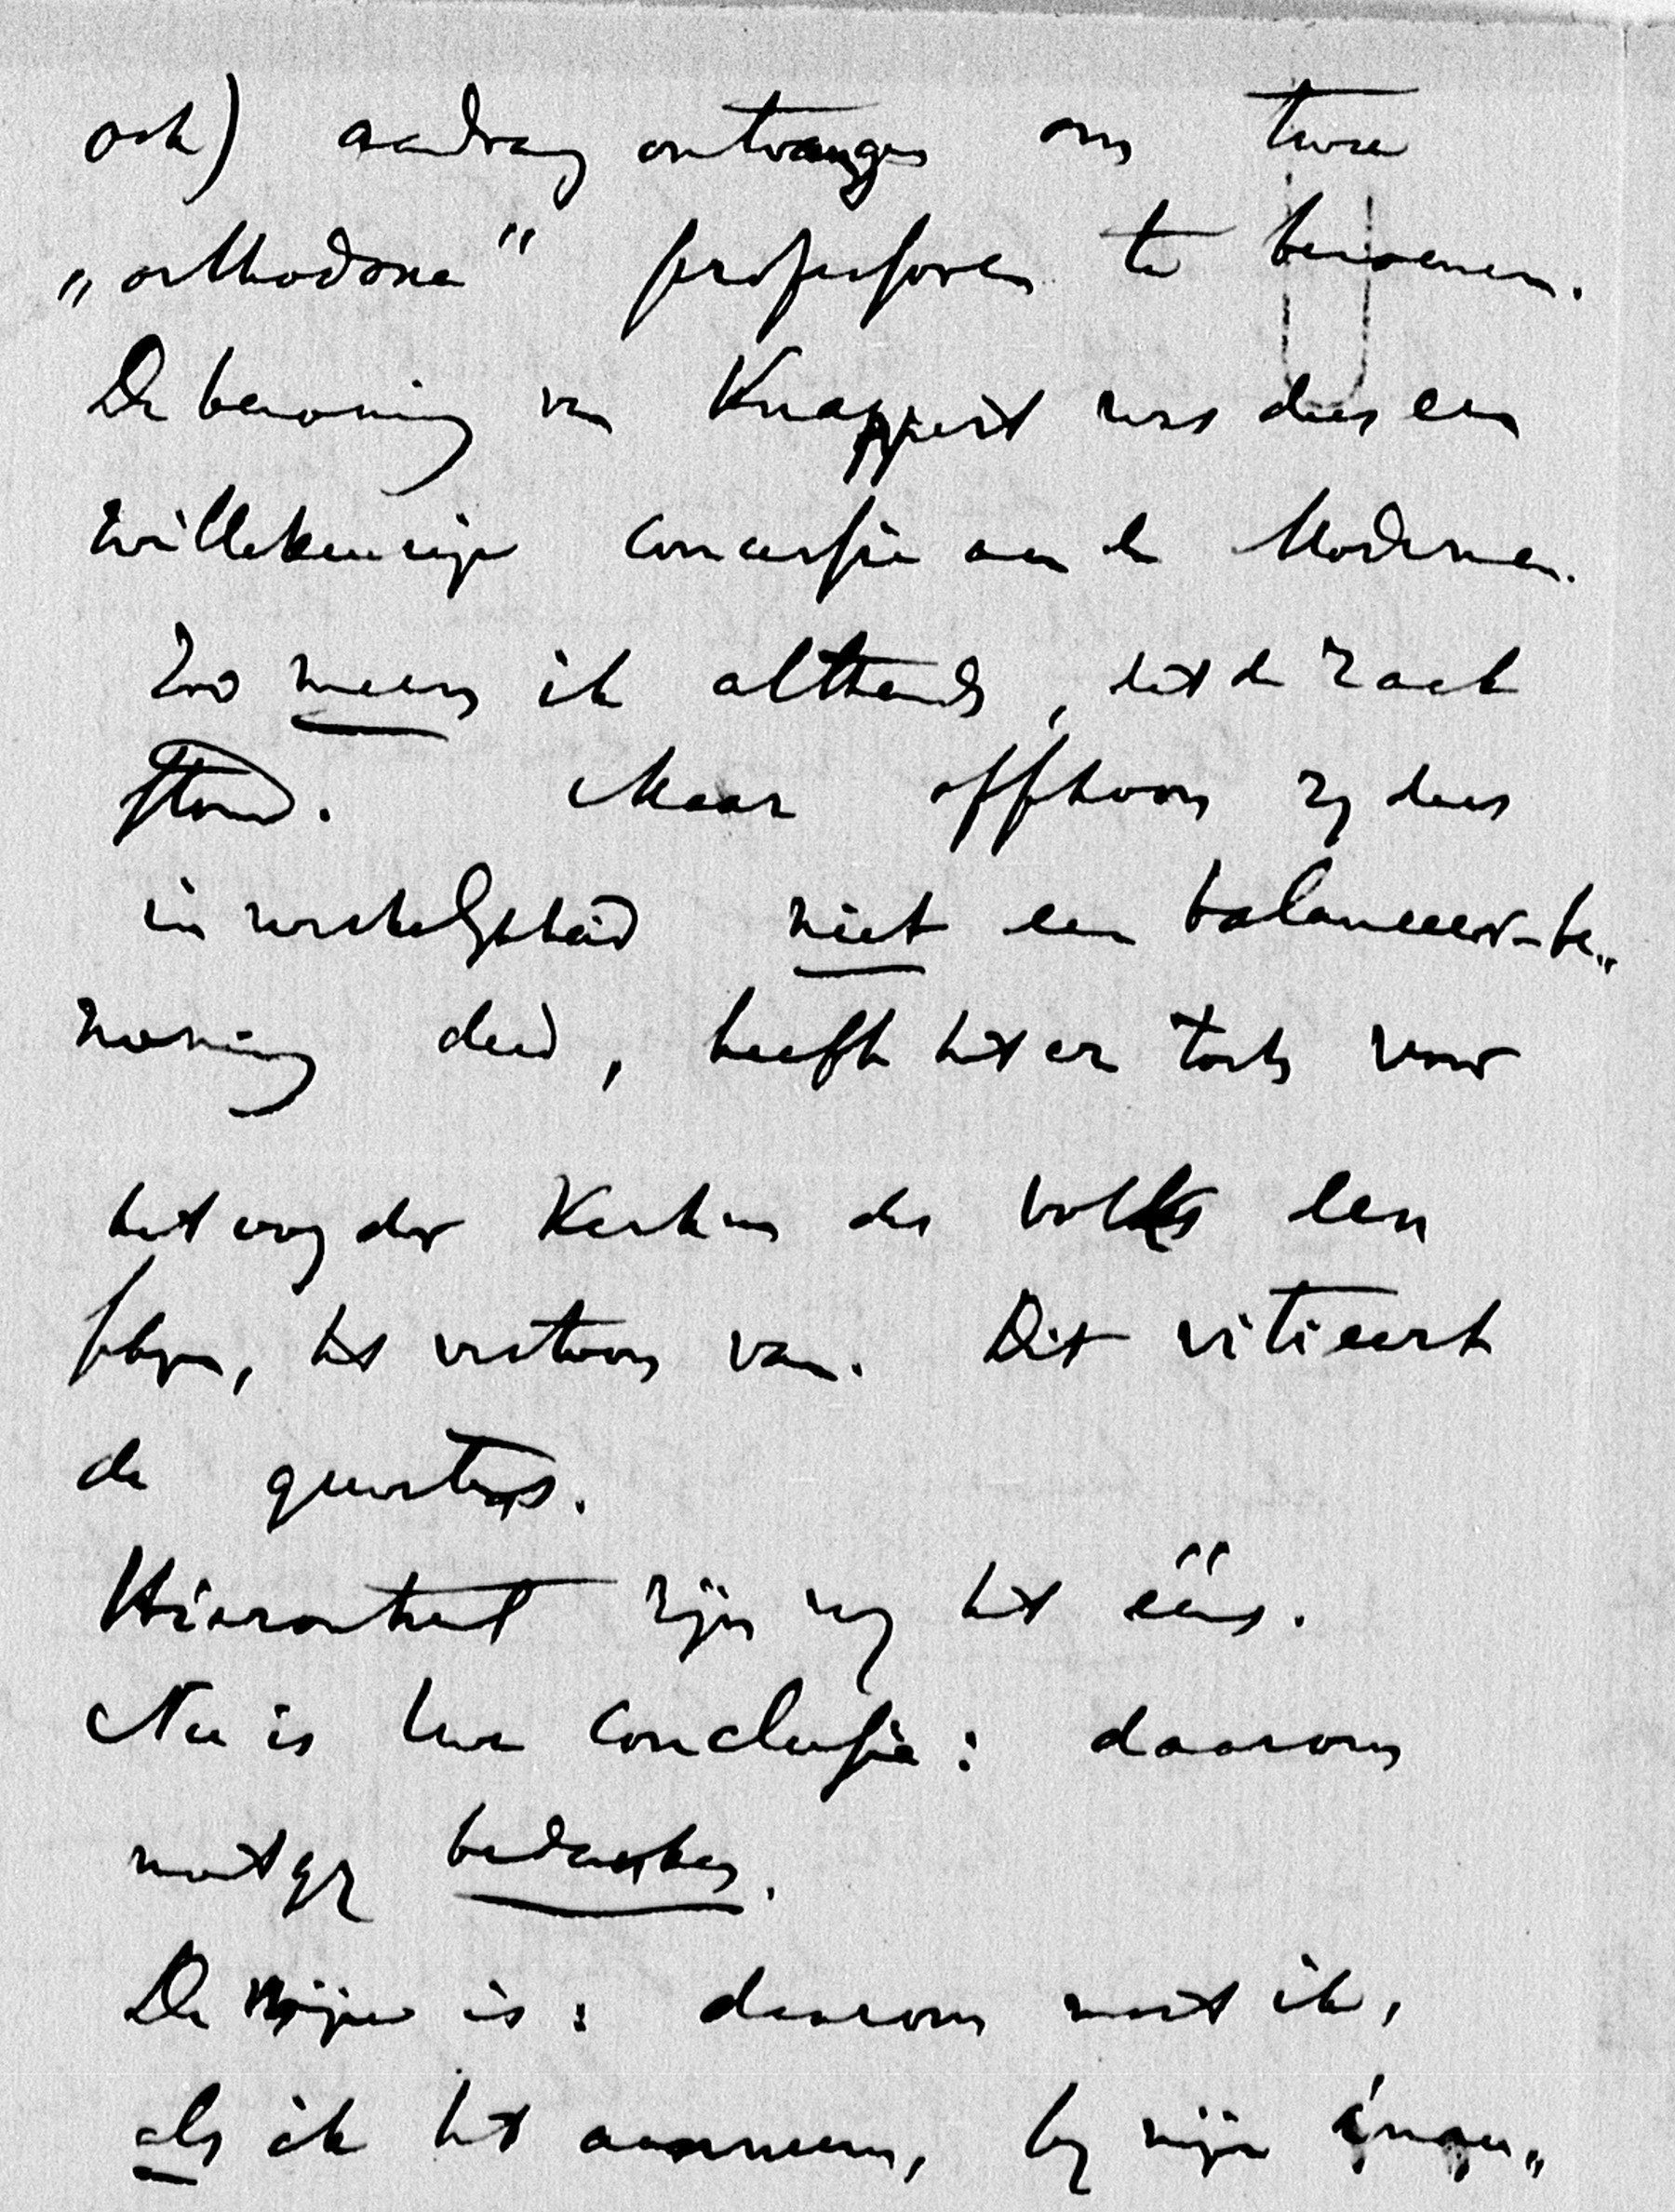 ook) aandrang ontvangen om twee
„orthodoxe" professoren te benoemen.
De benoeming van Knappert was dus een
willekeurige concessie aan de Modernen.
Zoo meen ik althans, dat de zaak
stond. Maar ofschoon zij dus
in werkelijkheid niet een balanceer-be„
noeming deed, heeft het er toch voor
het oog der Kerk en des volks den
schijn, het vertoon van. Dit vitieert
de quaestie.
Hieromtrent zijn wij het ééns.
Nu is Uwe conclusie: daarom
moet gij bedanken.
De mijne is: daarom moet ik,
als ik het aanneem, bij mijn